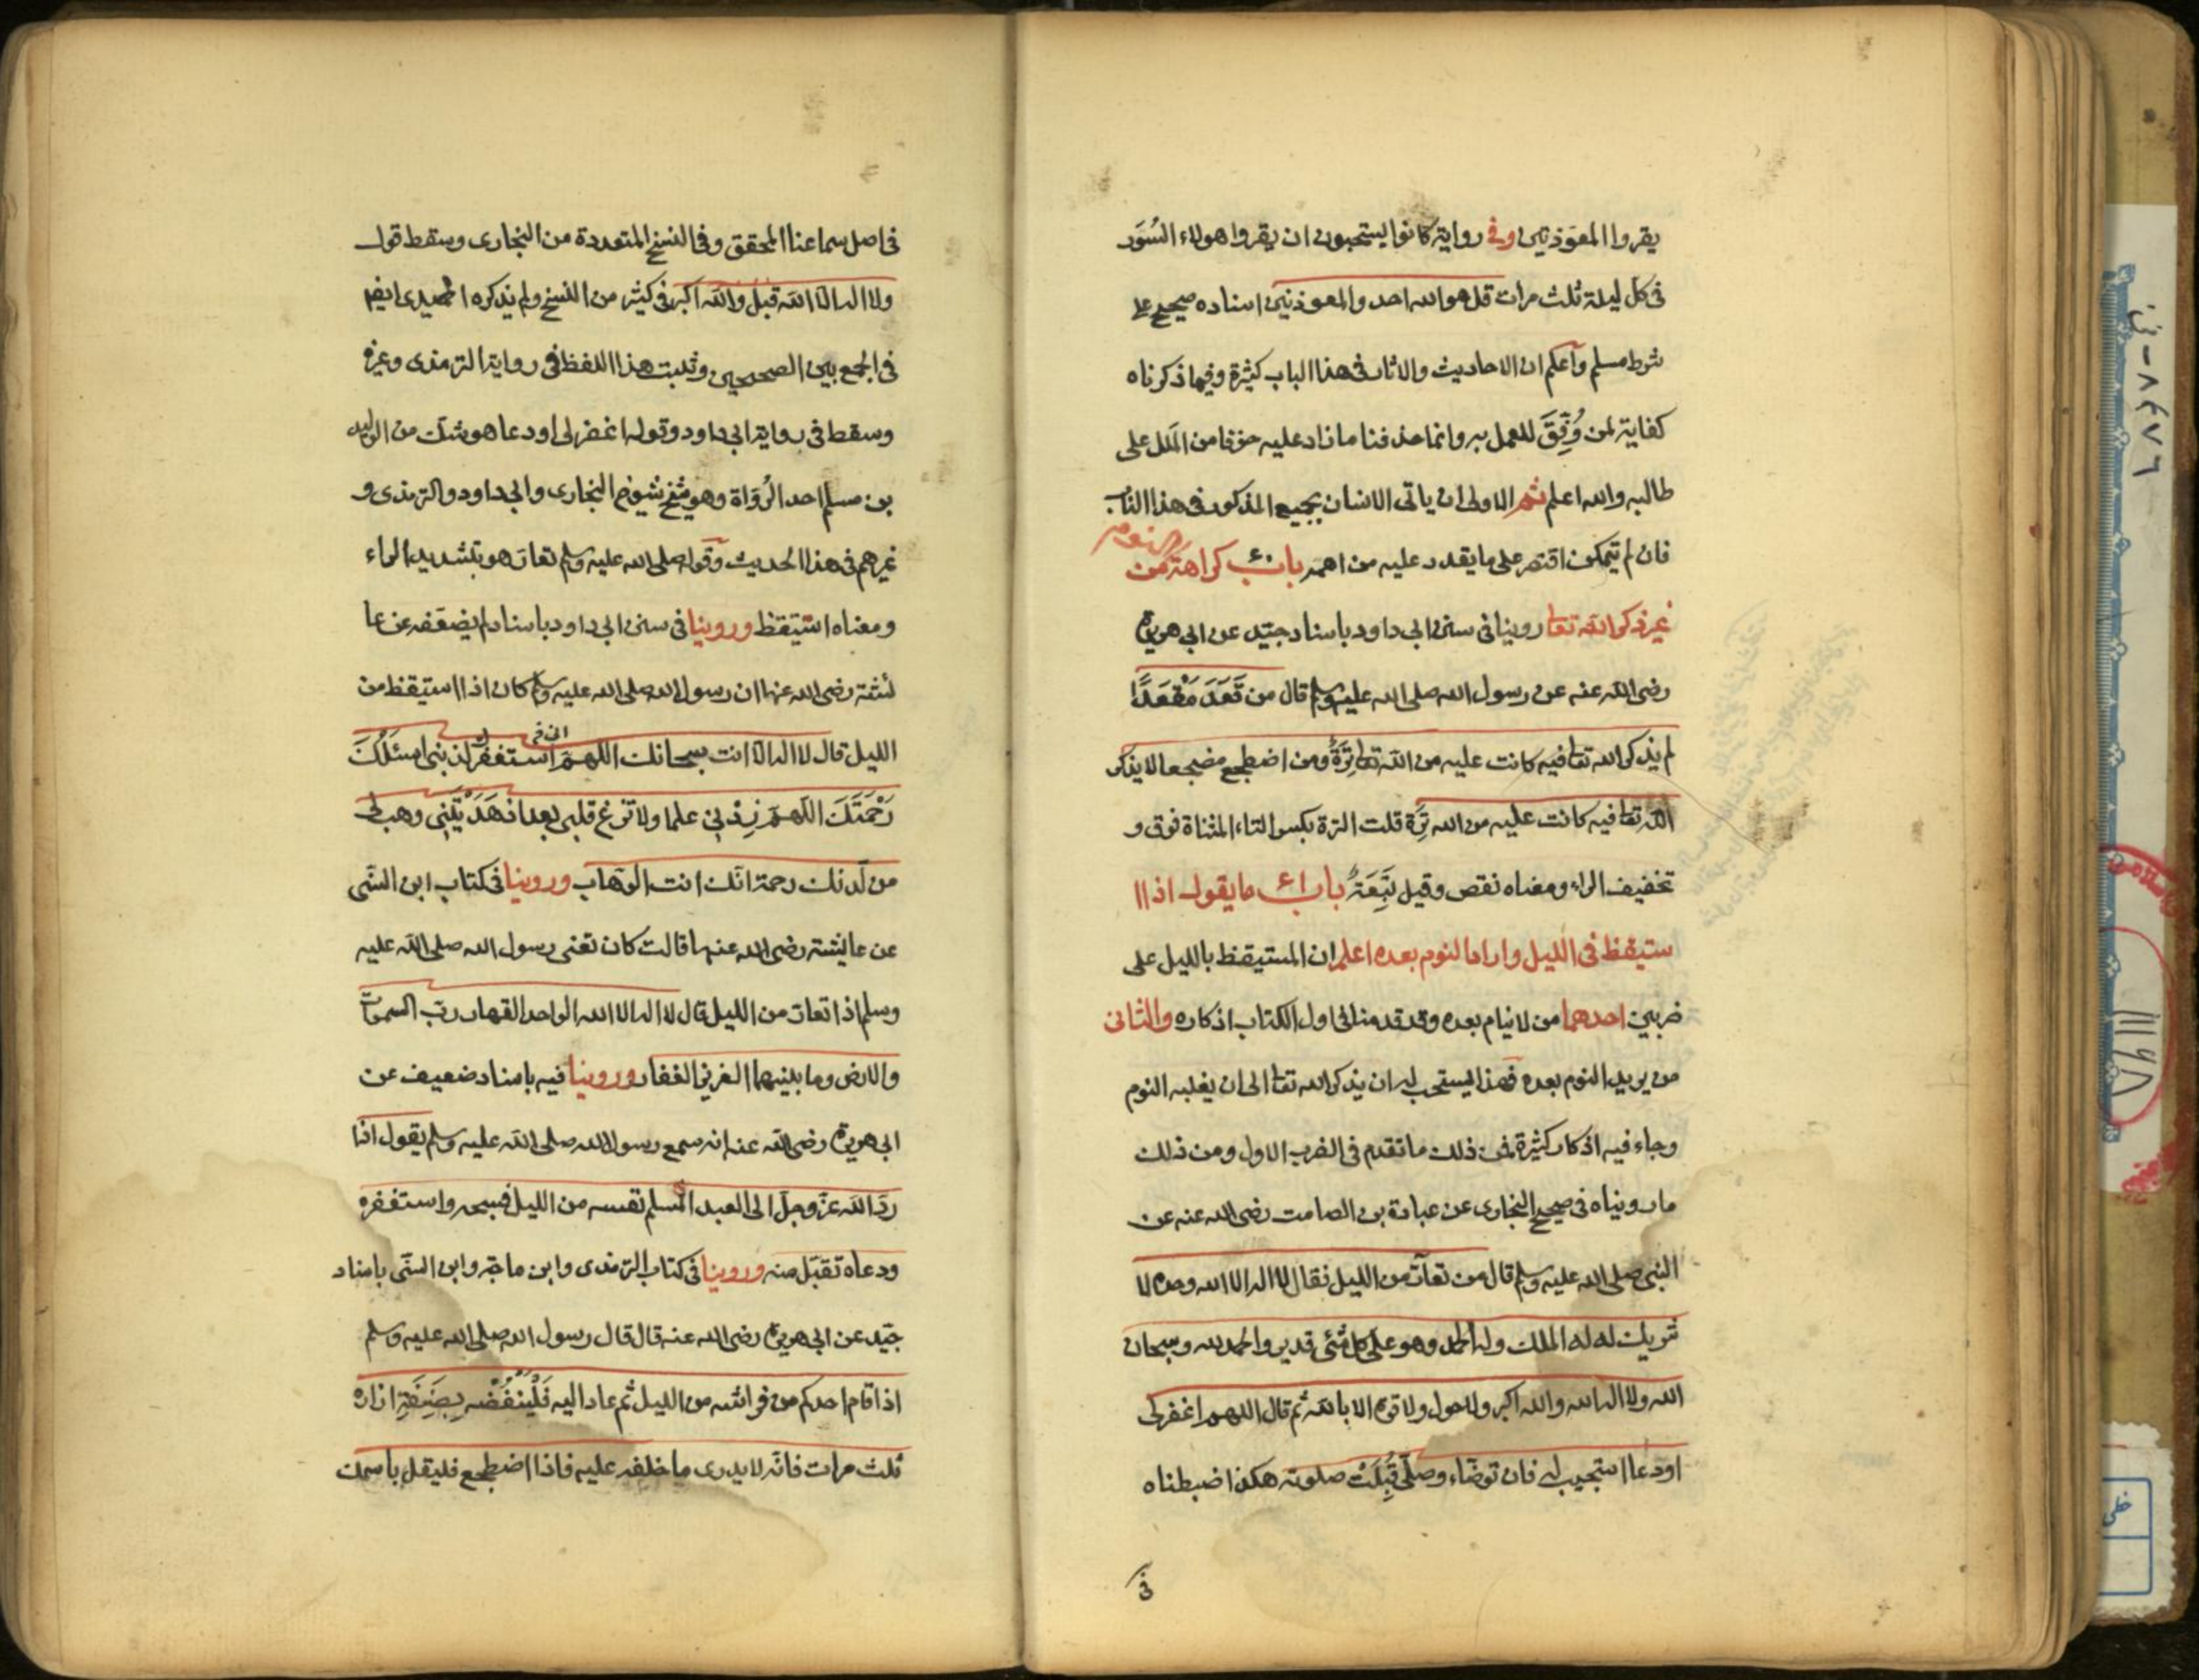 يقروا المعوذتين وفي رواية كانوا يستحبون ان يقروا هولاء السُوَر
في كل ليلة ثلث مرات قل هو الله احد والمعوذتين اسناده صحيح على
شرط مسلم وآعلم ان الاحاديث والاثار في هذا الباب كثيرة وفيما ذكرناه
كفاية لمن وُفِّقَ للعمل به وانما حذفنا ما زاد عليه خوفا من المَلل على
طالبه والله اعلم ثم الاولى ان ياتي الانسان بجميع المذكور في هذا الباب
فان لم يتمكن اقتصر على ما يقدر عليه من اهمه باب ٤٠ كراهة من
غير ذكر الله تعا روينا في سنن ابي داود باسناد جيّد عن ابي هريرة
رضي الله عنه عن رسول الله صلى الله عليه وسلم قال من قَعَدَ مَقْعَدًا
لم يذكر الله تعا فيه كانت عليه من الله تعا تِرَةٌ ومن اضطجع مضجعا لا يذكر
الله تعا فيه كانت عليه من الله تِرَة قلت الترة بكسر التاء المثناة فوق و
تخفيف الراء ومعناه نقص وقيل تَبِعَةٌ باب ٤١ ما يقول اذا ا
ستيقظ في الليل واراد النوم بعده اعلم ان المستيقظ بالليل على
ضربين احدهما من لا ينام بعده وقد قدمنا في اول الكتاب اذكاره والثاني
من يريد النوم بعده فهذا يستحب له ان يذكر الله تعا الى ان يغلبه النوم
وجاء فيه اذكار كثيرة فمن ذلك ما تقدم في الضرب الاول ومن ذلك
ما رويناه في صحيح البخاري عن عبادة بن الصامت رضي الله عنه عن
النبي صلى الله عليه وسلم قال من تعآرّ من الليل فقال لا اله الا الله وحده لا
شريك له له الملك وله الحمد وهو على كل شئ قدير والحمد لله وسبحان
الله ولا اله الله والله اكبر ولا حول ولا قوة الا بالله ثم قال اللهم اغفر لي
او دعا استجيب له فان توضّاء وصلّى قُبِلَتْ صلوته هكذا ضبطناه
في
في اصل سماعنا المحقق وفي النسخ المتعددة من البخاري وسقط قول
ولا اله الا الله قبل والله اكبر في كثير من النسخ ولم يذكره الحميدي ايضا
في الجمع بين الصحيحين وثبت هذا اللفظ في رواية الترمذي وغيره
وسقط في رواية ابي داود وقوله اغفر لي او دعا هو شك من الوليد
بن مسلم احد الرُوَاة وهو شيخ شيوخ البخاري وابي داود والترمذي و
غيرهم في هذا الحديث وقوله صلى الله عليه وسلم تعارّ هو بتشديد الراء
ومعناه استيقظ وروينا في سنن ابي داود باسناد لم يضعّفه عن عا
ئشة رضي الله عنها ان رسول الله صلى الله عليه وسلم كان اذا استيقظ من
الليل قال لا اله الا انت سبحانك اللهم استغفرك لذنبي اسئلك
رَحْمَتَكَ اللهم زِدْني علما ولا تزغ قلبي بعد اذ هَدَيْتَني وهب لي
من لدنك رحمة انك انت الوهاب وروينا في كتاب ابن السّني
عن عايشة رضي الله عنها قالت كان تعني رسول الله صلى الله عليه
وسلم اذا تعار من الليل قال لا اله الا الله الواحد القهار ربّ السموات
والارض وما بينهما العزيز الغفار وروينا فيه باسناد ضعيف عن
ابي هريرة رضي الله عنه انه سمع رسول الله صلى الله عليه وسلم يقول اذا
ردّ الله عزّ وجلّ الى العبد المسلم نفسه من الليل فسبحه واستغفره
ودعاه تقبّل منه وروينا في كتاب الترمذي وابن ماجة وابن السنّي باسناد
جيّد عن ابي هريرة رضي الله عنه قال قال رسول الله صلى الله عليه وسلم
اذا قام احدكم من فراشه من الليل ثم عاد اليه فَلْيَنْفُضْه بِصَنِفَةِ ازاره
ثلث مرات فانّه لا يدري ما خلفه عليه فاذا اضطجع فليقل باسمك